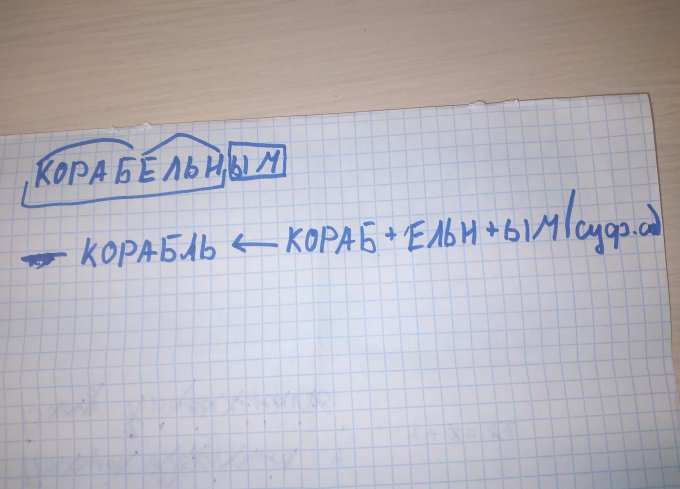 КОРАБЕЛЬНЫМ
КОРАБЛЬ ← КОРАБ + ЕЛЬН + ЫМ (суф.